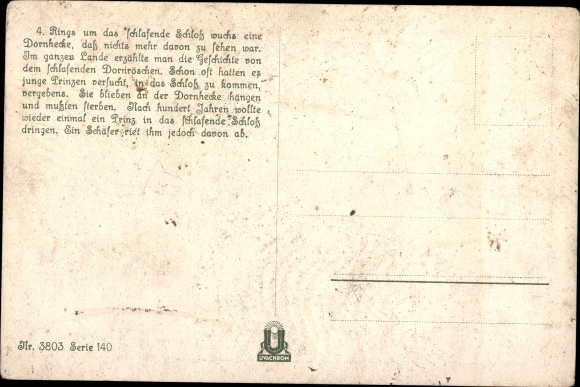 4. Rings um das schlafende Schloß wuchs eine
Dornhecke, daß nichts mehr davon zu sehen war.
Im ganzen Lande erzählte man die Geschichte von
dem schlafenden Dornröschen. Schon oft hatten es
junge Prinzen versucht, in das Schloß zu kommen,
vergebens. Sie blieben an der Dornhecke hängen
und mußten sterben. Nach hundert Jahren wollte
wieder einmal ein Prinz in das schlafende Schloß
dringen. Ein Schäfer riet ihm jedoch davon ab.
Nr. 3803 Serie 140
U
UVACHROM